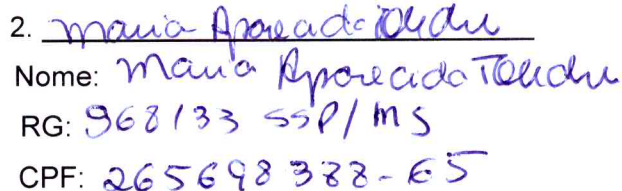 2. Maria Aparecida
Nome: Maria Aparecida
RG: 968133 SSP/MS
CPF: 265698388-65